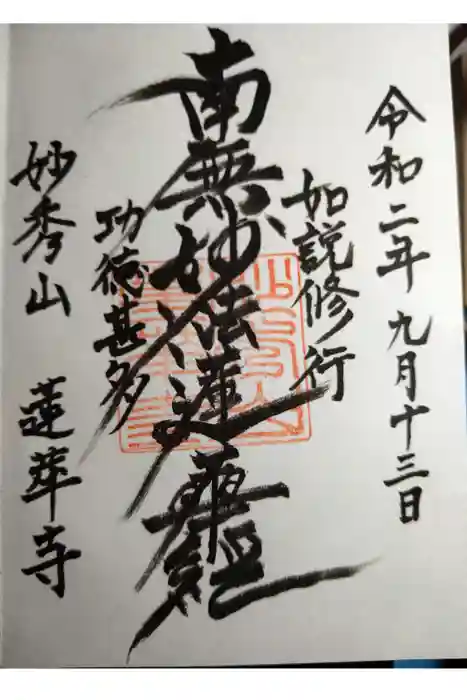 令和二年 九月十三日
如説修行
南無妙法蓮華経
功徳甚多
妙秀山 蓮華寺